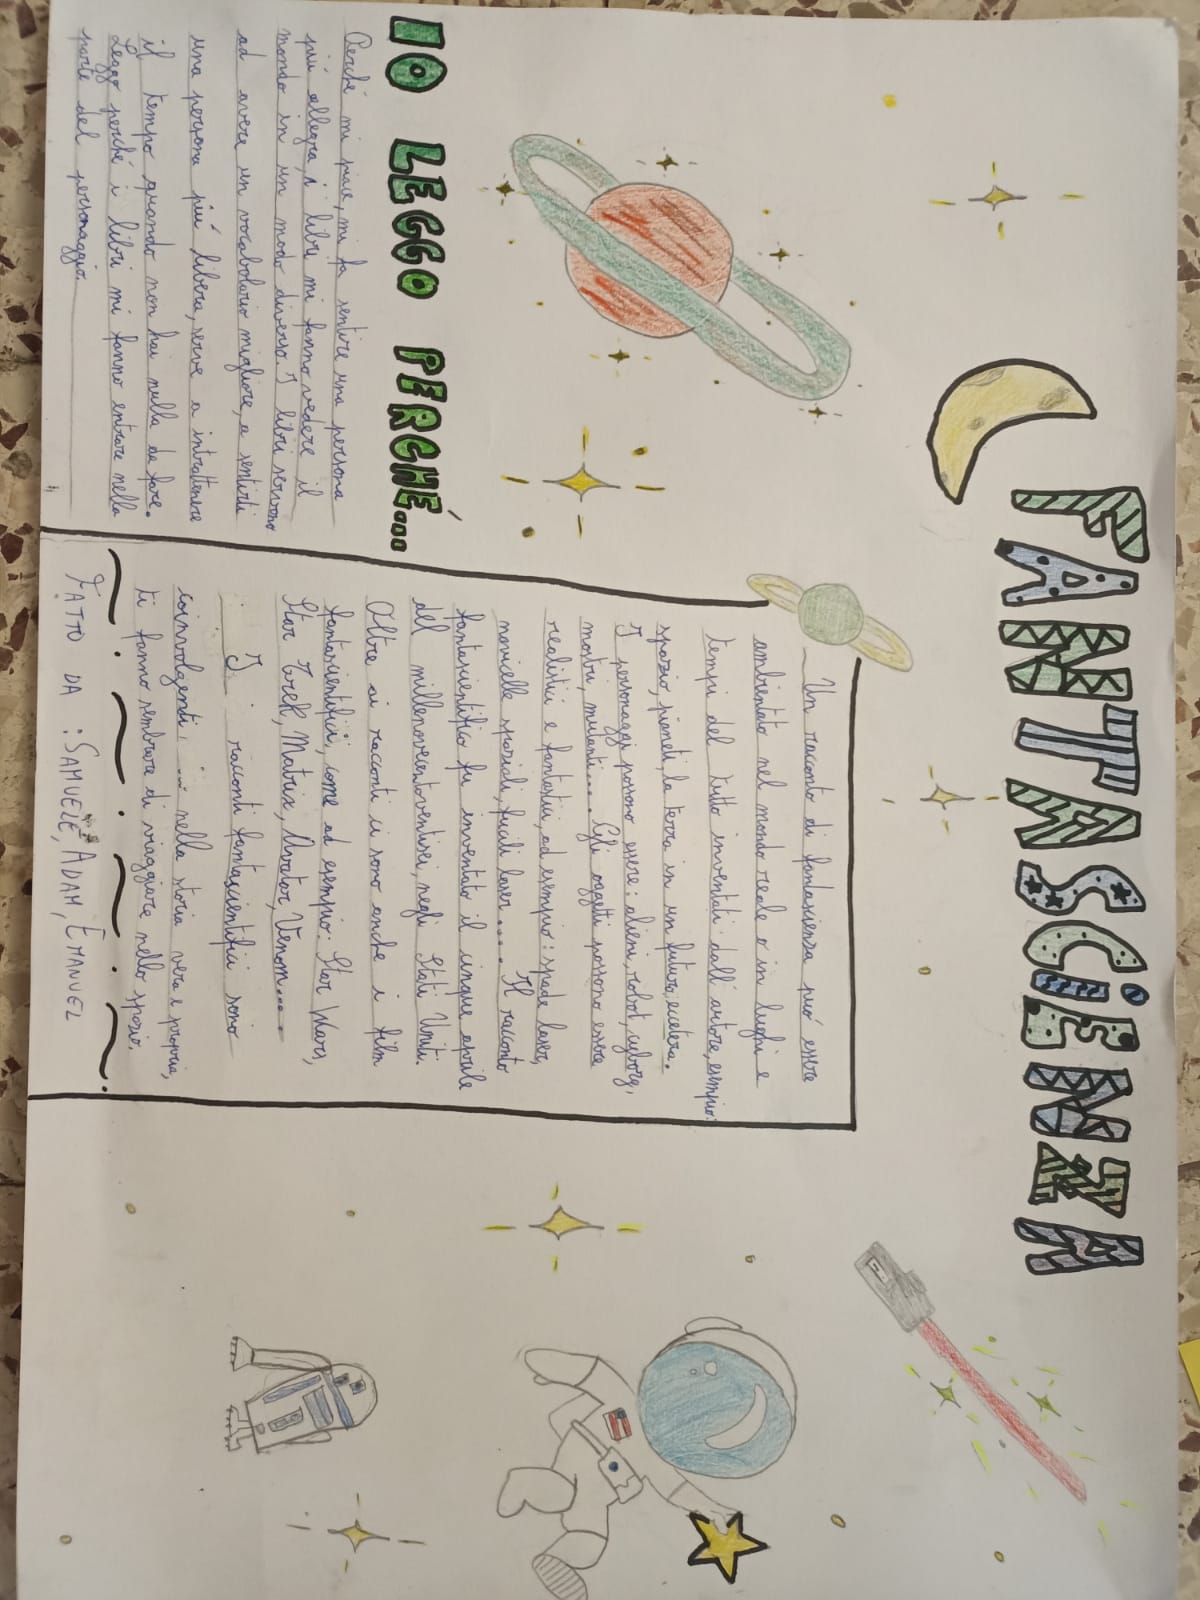 FANTASCIENZA
IO LEGGO PERCHÉ...
Perché mi piace, mi fa sentire una persona
più allegra, i libri mi fanno vedere il
mondo in un modo diverso. I libri servono
ad avere un vocabolario migliore, a sentirti
una persona più libera, serve a intrattenere
il tempo quando non hai nulla da fare.
Leggo perché i libri mi fanno entrare nella
parte del personaggio.
Un racconto di fantascienza può essere
ambientato nel mondo reale o in luoghi e
tempi del tutto inventati dall'autore, esempio:
spazio, pianeti, la terra in un futuro, eccetera.
I personaggi possono essere: alieni, robot, cyborg,
mostri, mutanti.... Gli oggetti possono essere
realistici e fantastici, ad esempio: spade laser,
navicelle spaziali, fucili laser..... Il racconto
fantascientifico fu inventato il cinque aprile
del millenovecentoventisei, negli Stati Uniti.
Oltre ai racconti ci sono anche i film
fantascientifici, come ad esempio: Star Wars,
Star Trek, Matrix, Avatar, Venom....
I racconti fantascientifici sono
coinvolgenti: nella storia vera e propria,
ti fanno sembrare di viaggiare nello spazio.
FATTO DA: SAMUELE, ADAM, EMANUEL